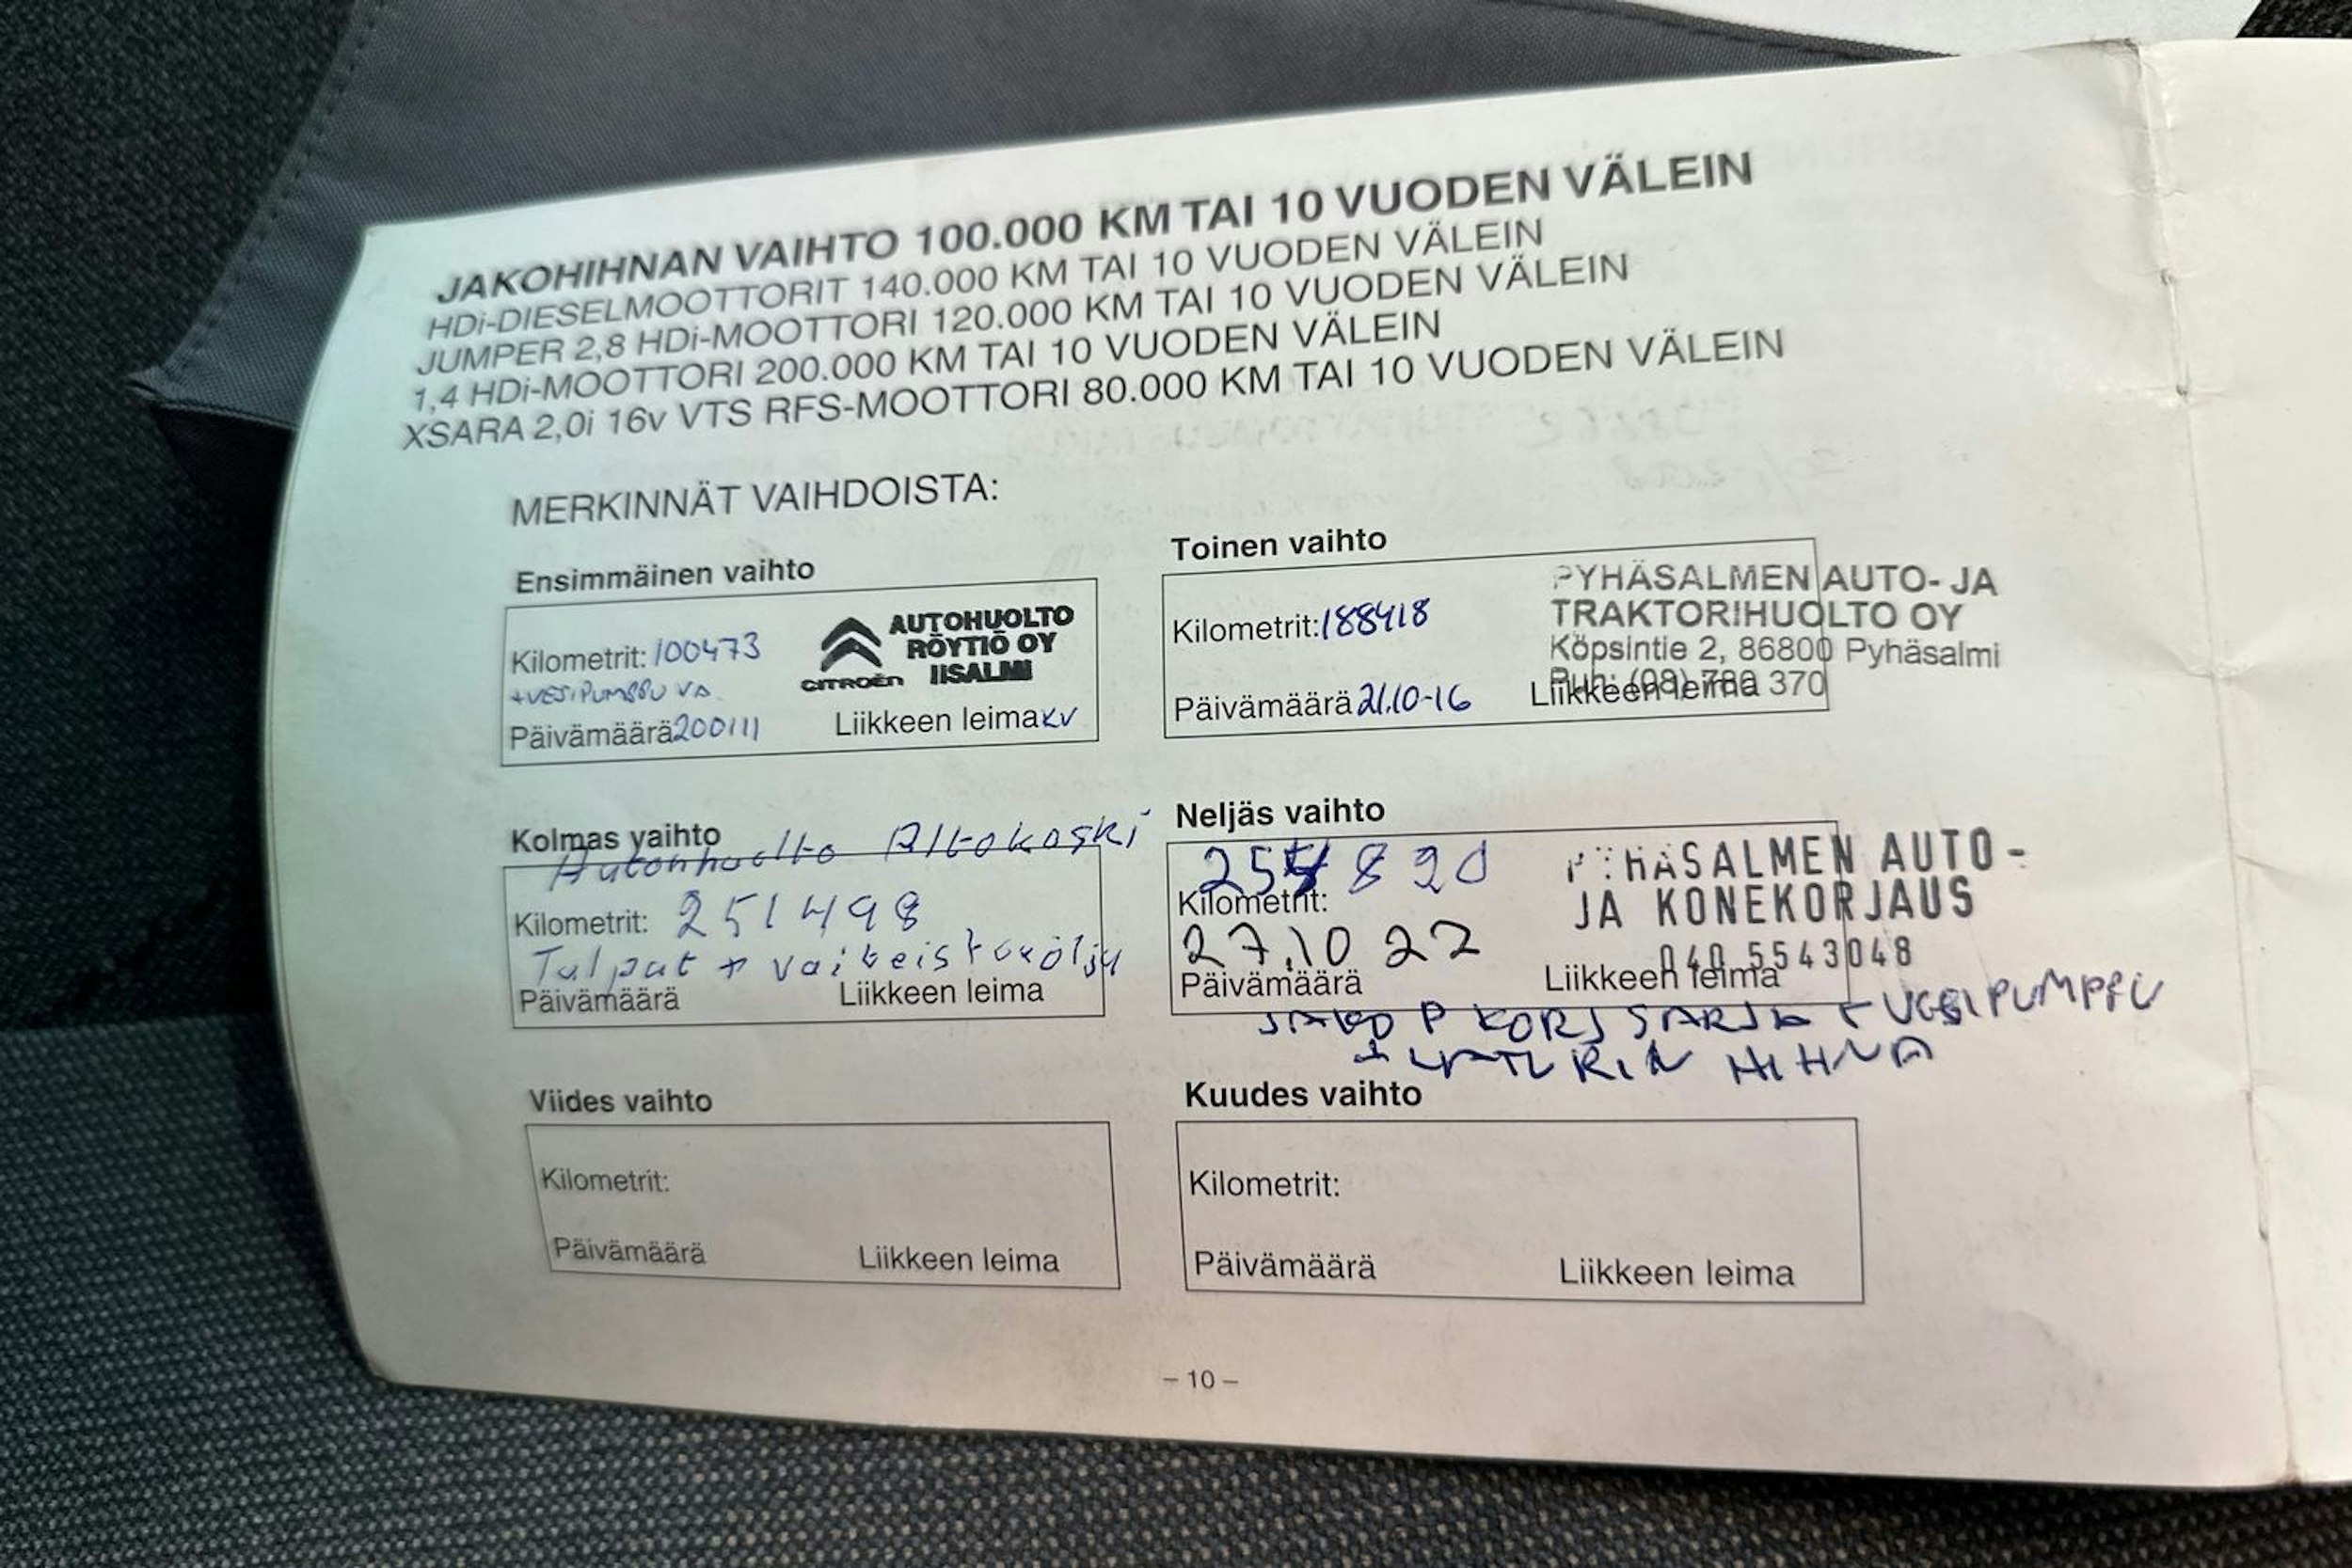 JAKOHIHNAN VAIHTO 100.000 KM TAI 10 VUODEN VÄLEIN
HDi-DIESELMOOTTORIT 140.000 KM TAI 10 VUODEN VÄLEIN
JUMPER 2,8 HDi-MOOTTORI 120.000 KM TAI 10 VUODEN VÄLEIN
1,4 HDi-MOOTTORI 200.000 KM TAI 10 VUODEN VÄLEIN
XSARA 2,0i 16v VTS RFS-MOOTTORI 80.000 KM TAI 10 VUODEN VÄLEIN
MERKINNÄT VAIHDOISTA:
Ensimmäinen vaihto
Kilometrit: 100473
+VESIPUMPPU VA
Päivämäärä 200111
CITROËN
AUTOHUOLTO
RÖYTIÖ OY
IISALMI
Liikkeen leima KV
Toinen vaihto
Kilometrit: 188418
Päivämäärä 21.10-16
PYHÄSALMEN AUTO- JA
TRAKTORIHUOLTO OY
Köpsintie 2, 86800 Pyhäsalmi
Puh: (08) 780 370
Liikkeen leima
Kolmas vaihto
Autohuolto Altokoski
Kilometrit: 251498
Tulpat + vaihteistoöljy
Päivämäärä
Liikkeen leima
Neljäs vaihto
Kilometrit:
27.10 22
Päivämäärä
PYHÄSALMEN AUTO-
JA KONEKORJAUS
040 5543048
Liikkeen leima
JAKO P KORJ SARJA + VESIPUMPPU
+ LATURIN HIHNA
Viides vaihto
Kilometrit:
Päivämäärä
Liikkeen leima
Kuudes vaihto
Kilometrit:
Päivämäärä
Liikkeen leima
– 10 –